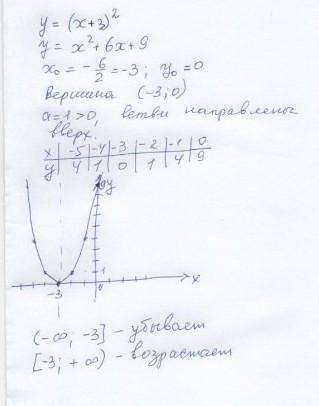 y = (x+3)²
y = x²+6x+9
x₀ = -6/2 = -3; y₀ = 0
Вершина (-3;0)
a=1>0, ветви направлены
вверх.
x | -5 | -4 | -3 | -2 | -1 | 0
y | 4 | 1 | 0 | 1 | 4 | 9
9 y
1
x
-3 0
(-∞; -3] - убывает
[-3; +∞) - возрастает